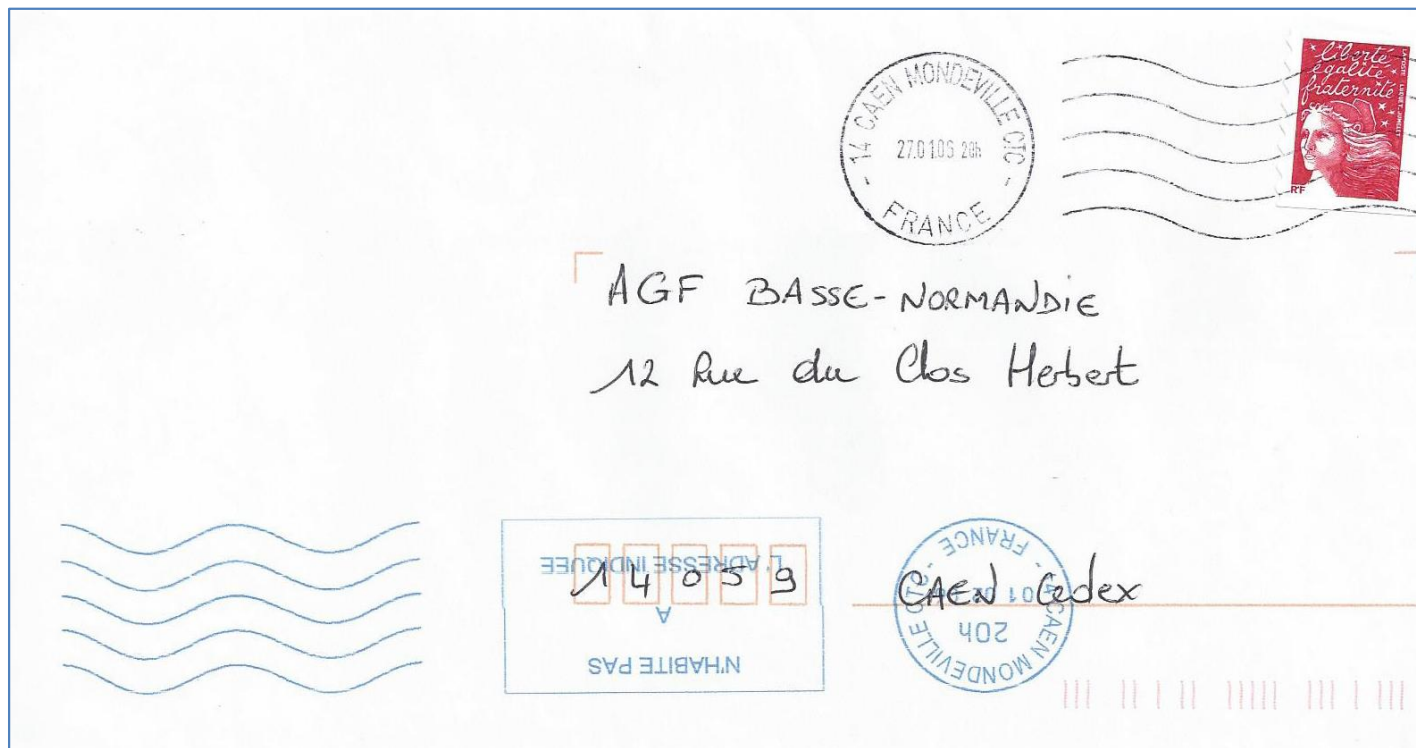 14 CAEN MONDEVILLE CTC
27.01.06 20h
FRANCE
liberté
égalité
fraternité
RF
LA POSTE
AGF BASSE-NORMANDIE
12 Rue du Clos Herbert
14059 CAEN Cedex
N'HABITE PAS
A
L'ADRESSE INDIQUEE
14 CAEN MONDEVILLE CTC
20h
FRANCE